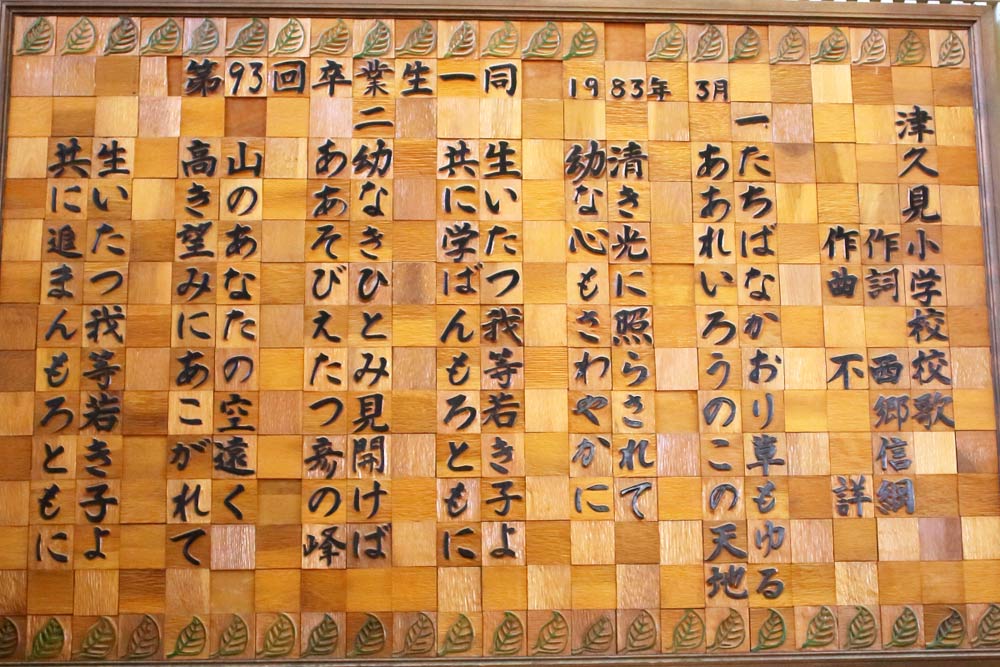 第93回卒業生一同　1983年　3月
津久見小学校校歌
作詞　西郷信綱
作曲　不詳
一たちばなかおり草もゆる
ああれいろうのこの天地
清き光に照らされて
幼な心もさわやかに
生いたつ我等若き子よ
共に学ばんもろともに
二幼なきひとみ見開けば
ああそびえたつ彦の峰
山のあなたの空遠く
高き望みにあこがれて
生いたつ我等若き子よ
共に進まんもろともに